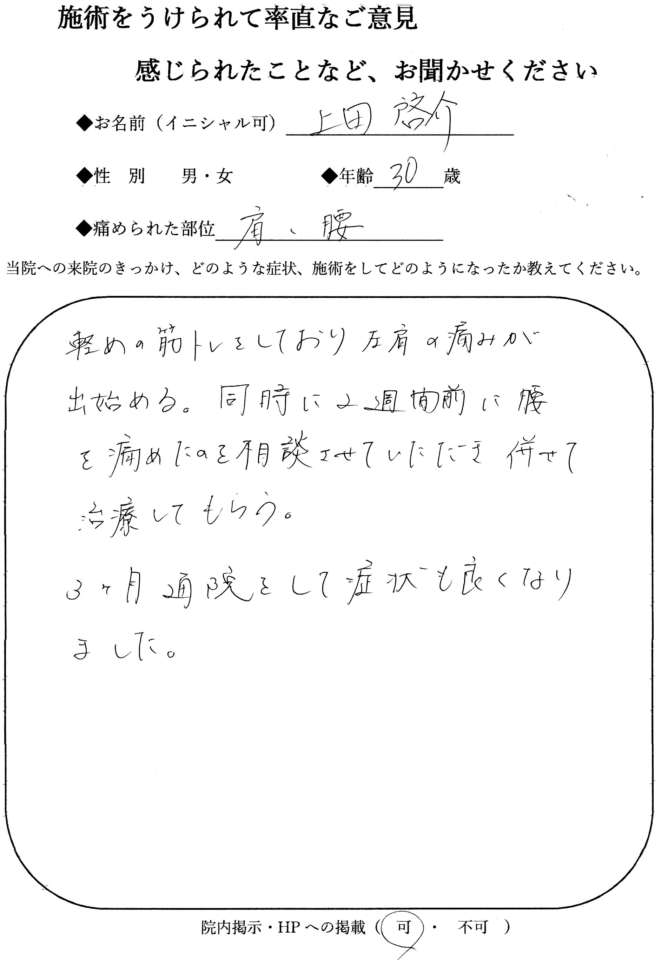 施術をうけられて率直なご意見
感じられたことなど、お聞かせください
◆お名前（イニシャル可） 上田 啓介
◆性 別 男・女 ◆年齢 30 歳
◆痛められた部位 肩、腰
当院への来院のきっかけ、どのような症状、施術をしてどのようになったか教えてください。
軽めの筋トレをしており左肩の痛みが
出始める。同時に2週間前に腰
を痛めたのを相談させていただき併せて
治療してもらう。
3ヶ月通院をして症状も良くなり
ました。
院内掲示・HPへの掲載（ 可 ・ 不可 ）